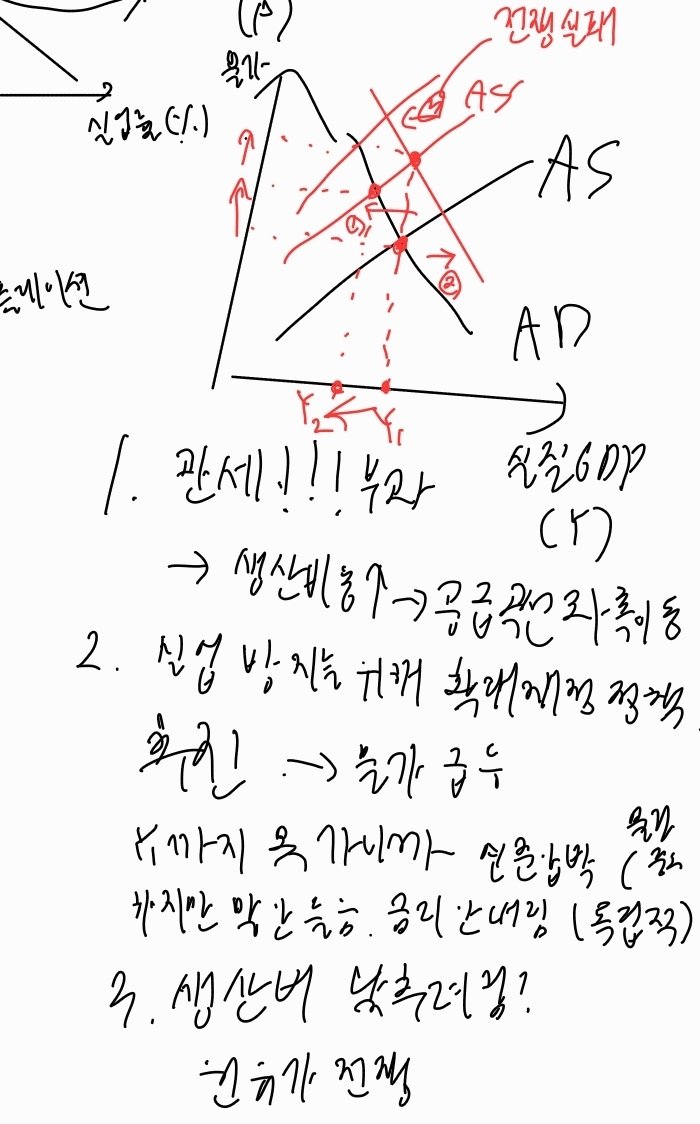 (P)
물가
실업률(%)
플레이션
전쟁실패
③
AS'
AS
①
②
AD
Y₂
Y₁
실질GDP
(Y)
1. 관세!!! 부과
→ 생산비용↑ → 공급곡선 좌측이동
2. 실업 방지를 위해 확대재정 정책
추진 → 물가 급
Y₁까지 못 가니까
하지만 말 안들음. 금리 안내림 (독립적)
3. 생산비 낮추려면?
전쟁